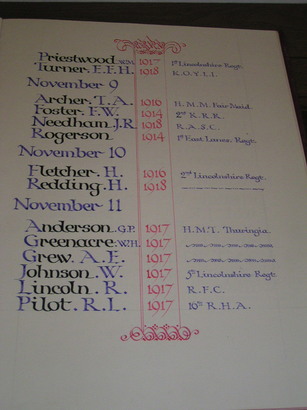 Priestwood. W.M. 1917 1st Lincolnshire Regt.
Turner. E.F.H. 1918 K.O.Y.L.I.
November 9
Archer. T.A. 1916 H.M.M. Fair Maid.
Foster. F.W. 1914 2nd K.R.R.
Needham. J.R. 1918 R.A.F.C.
Rogerson. 1914 1st East Lancs. Regt.
November 10
Fletcher. H. 1916 2nd Lincolnshire Regt.
Redding. H. 1918
November 11
Anderson. G.P. 1917 H.M.T. Thuringia
Greenacre. W.H. 1917
Grew. A.E. 1917
Johnson. W. 1917 5th Lincolnshire Regt.
Lincoln. R. 1917 R.F.C.
Pilot. R.L. 1917 16th R.H.A.